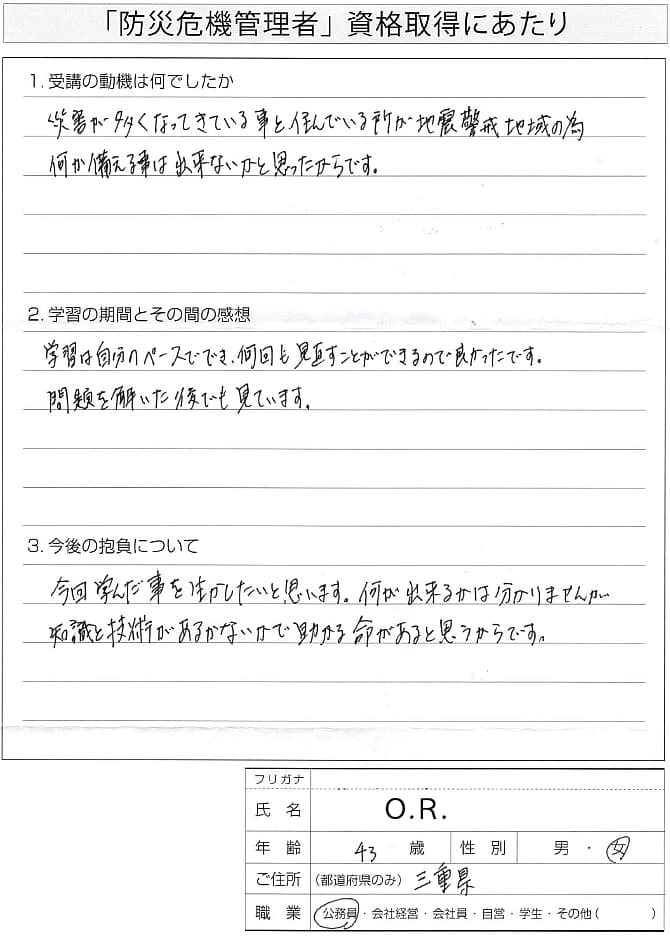 「防災危機管理者」資格取得にあたり
1. 受講の動機は何でしたか
災害が多くなってきている事と住んでいる所が地震警戒地域の為
何か備える事は出来ないかと思ったからです。
2. 学習の期間とその間の感想
学習は自分のペースででき、何回も見直すことができるので良かったです。
問題を解いた後でも見ています。
3. 今後の抱負について
今回学んだ事を生かしたいと思います。何が出来るかは分かりませんが
知識と技術があるかないかで助かる命があると思うからです。
フリガナ
氏 名 O.R.
年 齢 43 歳 性 別 男 ・ 女
ご住所 (都道府県のみ) 三重県
職 業 公務員・会社経営・会社員・自営・学生・その他( )